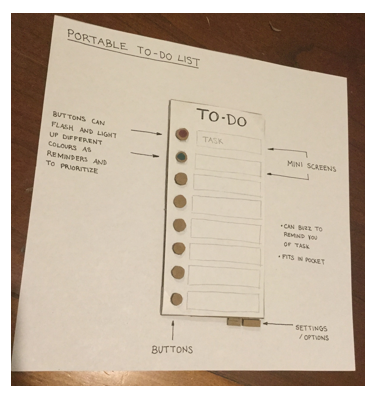 PORTABLE TO-DO LIST
BUTTONS CAN
FLASH AND LIGHT
UP DIFFERENT
COLOURS AS
REMINDERS AND
TO PRIORITIZE
TO-DO
TASK
MINI SCREENS
• CAN BUZZ TO
REMIND YOU
OF TASK
• FITS IN POCKET
SETTINGS
/OPTIONS
BUTTONS